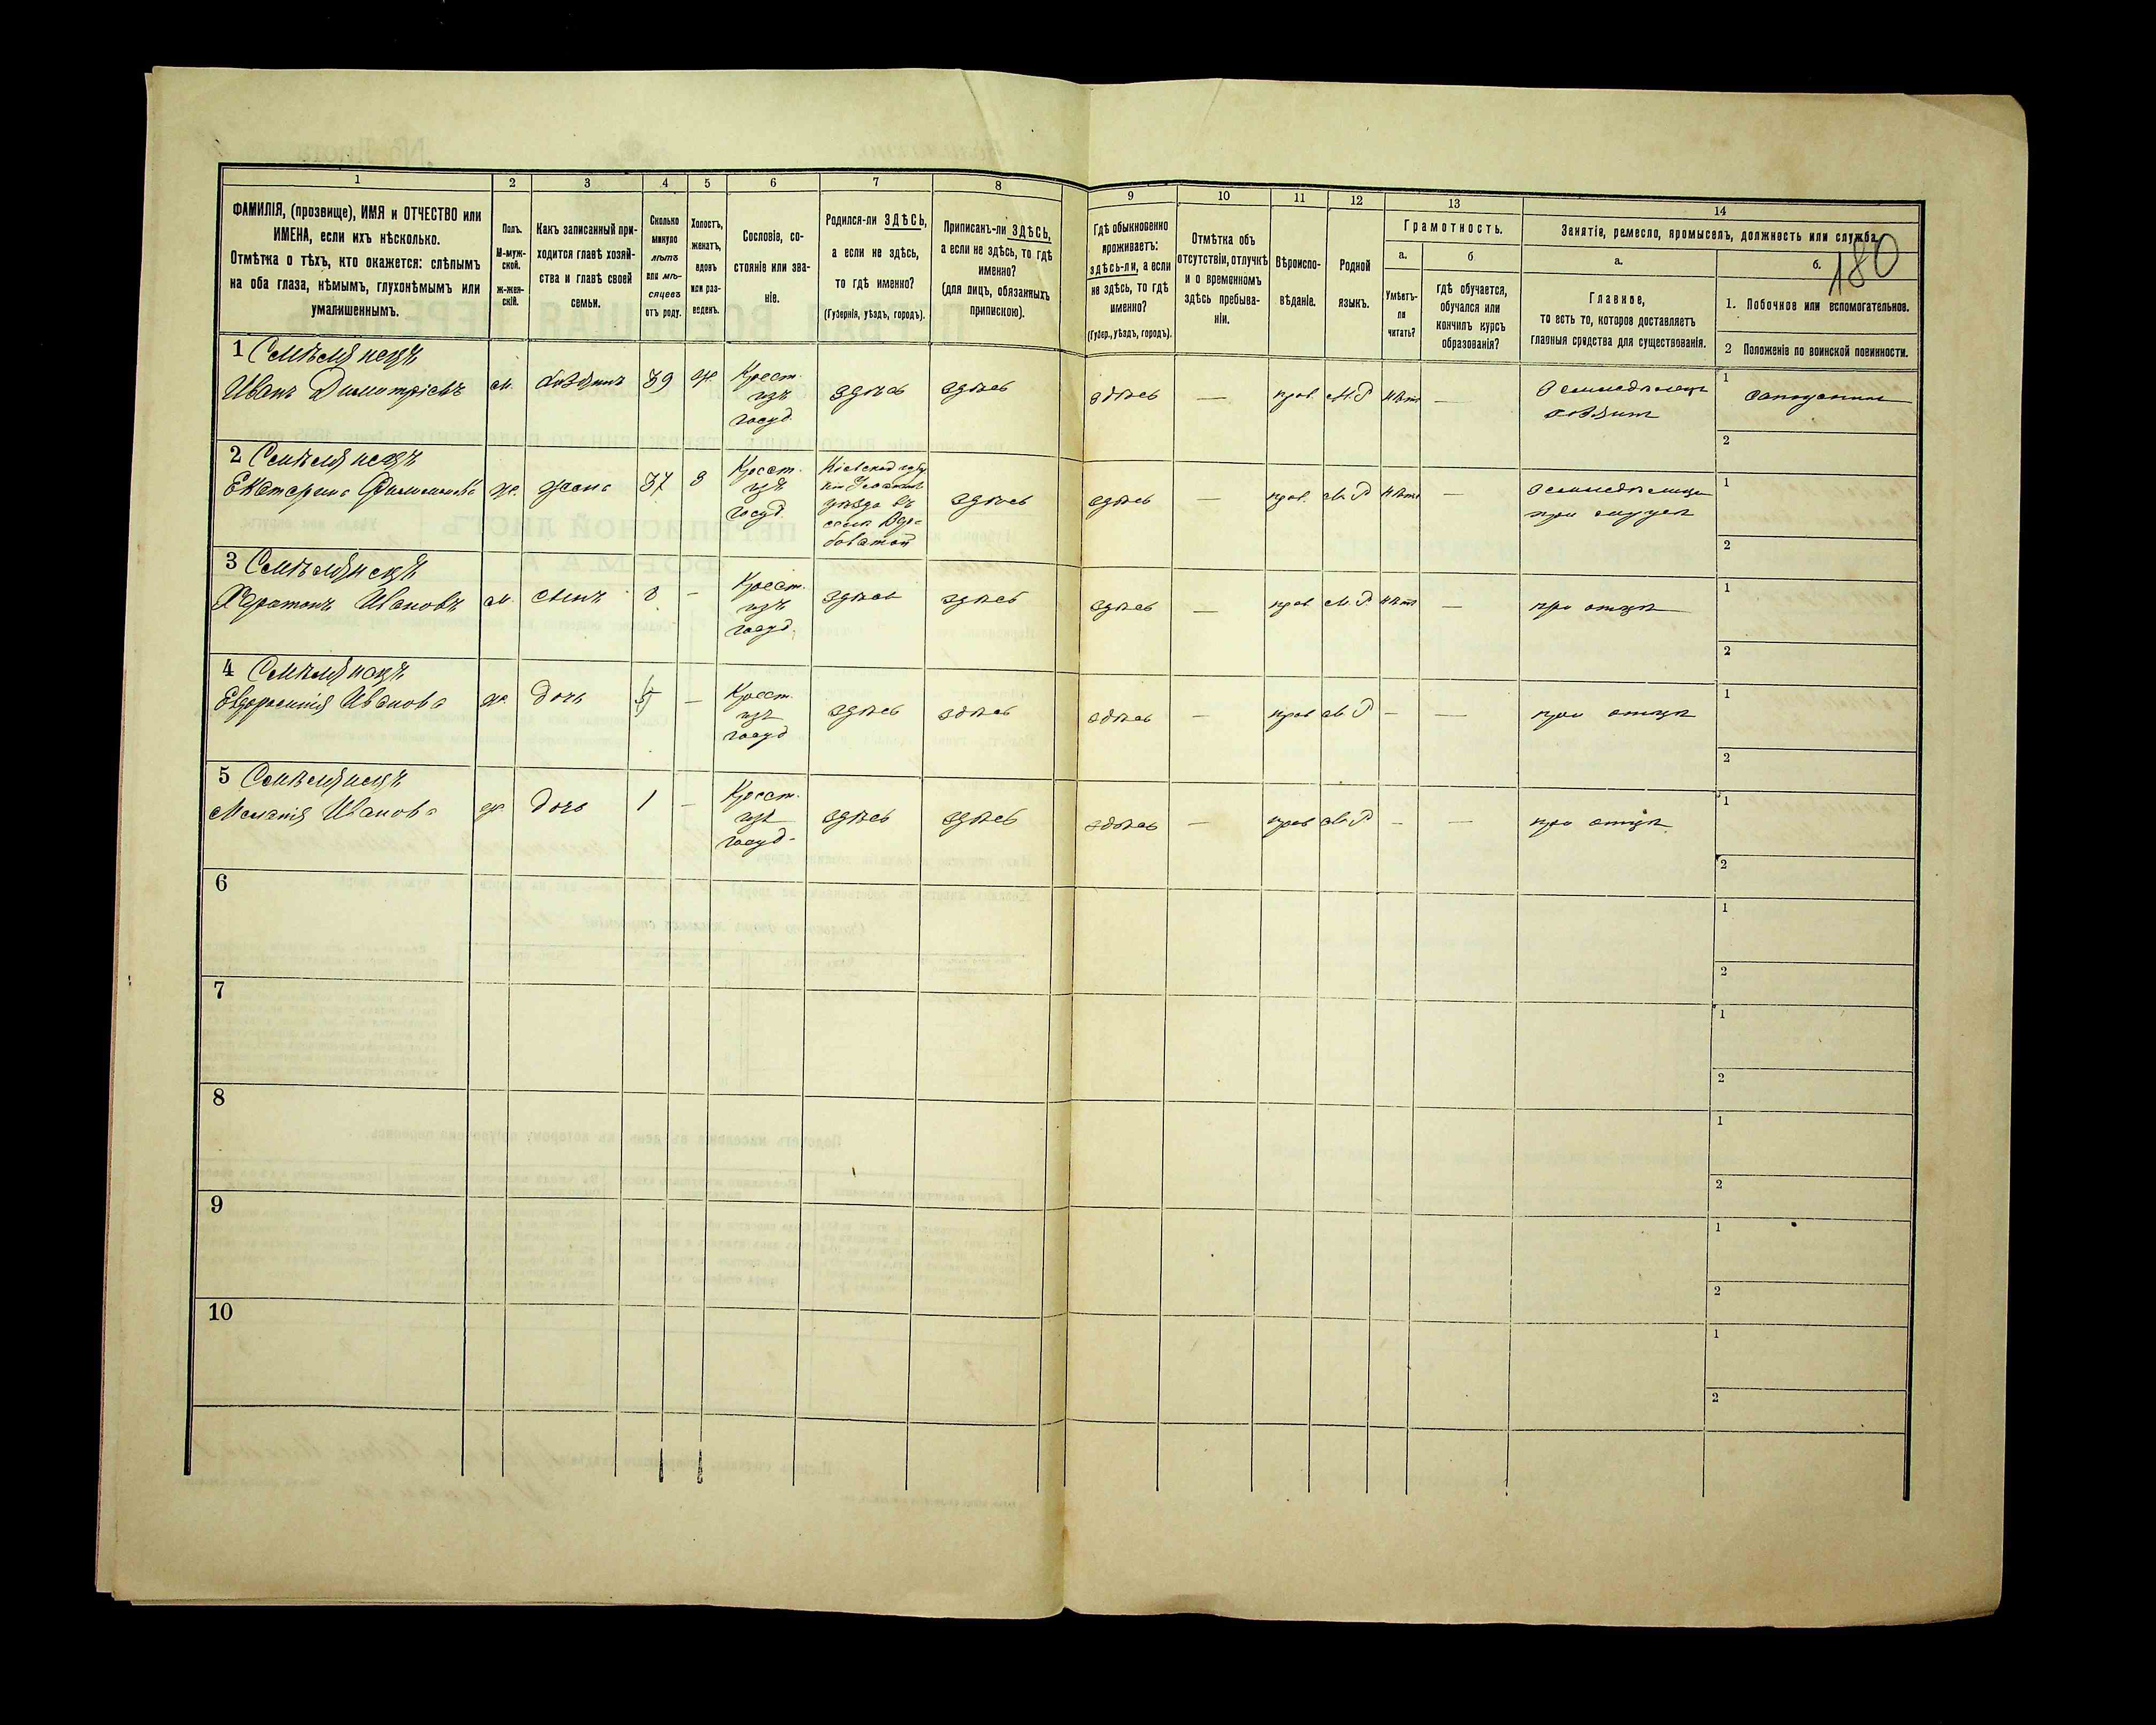 180
1 2 3 4 5 6 7 8 9 10 11 12 13 14
ФАМИЛІЯ, (прозвище), ИМЯ и ОТЧЕСТВО или
ИМЕНА, если ихъ нѣсколько.
Отмѣтка о тѣхъ, кто окажется: слѣпымъ
на оба глаза, нѣмымъ, глухонѣмымъ или
умалишеннымъ.
Полъ.
М-муж-
ской.
ж-жен-
скій.
Какъ записанный при-
ходится главѣ хозяй-
ства и главѣ своей
семьи.
Сколько
минуло
лѣтъ
или мѣ-
сяцевъ
отъ роду.
Холостъ,
женатъ,
вдовъ
или раз-
веденъ.
Сословіе, со-
стояніе или зва-
ніе.
Родился-ли ЗДѢСЬ,
а если не здѣсь,
то гдѣ именно?
(Губернія, уѣздъ, городъ).
Приписанъ-ли ЗДѢСЬ,
а если не здѣсь, то гдѣ
именно?
(для лицъ, обязанныхъ
припискою).
Гдѣ обыкновенно
проживаетъ:
здѣсь-ли, а если
не здѣсь, то гдѣ
именно?
(Губер., уѣздъ, городъ).
Отмѣтка объ
отсутствіи, отлучкѣ
и о временномъ
здѣсь пребыва-
ніи.
Вѣроиспо-
вѣданіе.
Родной
языкъ.
Грамотность.
а.
Умѣетъ-
ли
читать?
б
гдѣ обучается,
обучался или
кончилъ курсъ
образованія?
Занятіе, ремесло, промыселъ, должность или служба.
а.
Главное,
то есть то, которое доставляетъ
главныя средства для существованія.
б.
1. Побочное или вспомогательное.
2 Положеніе по воинской повинности.
1
Иванъ Димитріевъ м. 39 ж. Крест. изъ госуд. здѣсь здѣсь здѣсь — прав. М.Р. нѣтъ —
1
2
2
Екатерина жена 37 з Крест. изъ госуд. здѣсь здѣсь — прав. М.Р. нѣтъ —
при мужѣ
1
2
3
Харитонъ Ивановъ м. сынъ 8 — Крест. изъ госуд. здѣсь здѣсь здѣсь — прав М.Р. нѣтъ — при отцѣ
1
2
4
Евфросинія Иванова ж. дочь 5 — Крест. изъ госуд здѣсь здѣсь здѣсь — прав М.Р — — при отцѣ
1
2
5
Меланія Иванова ж. дочь 1 — Крест. изъ госуд. здѣсь здѣсь здѣсь — прав М.Р — — при отцѣ
1
2
6
1
2
7
1
2
8
1
2
9
1
2
10
1
2